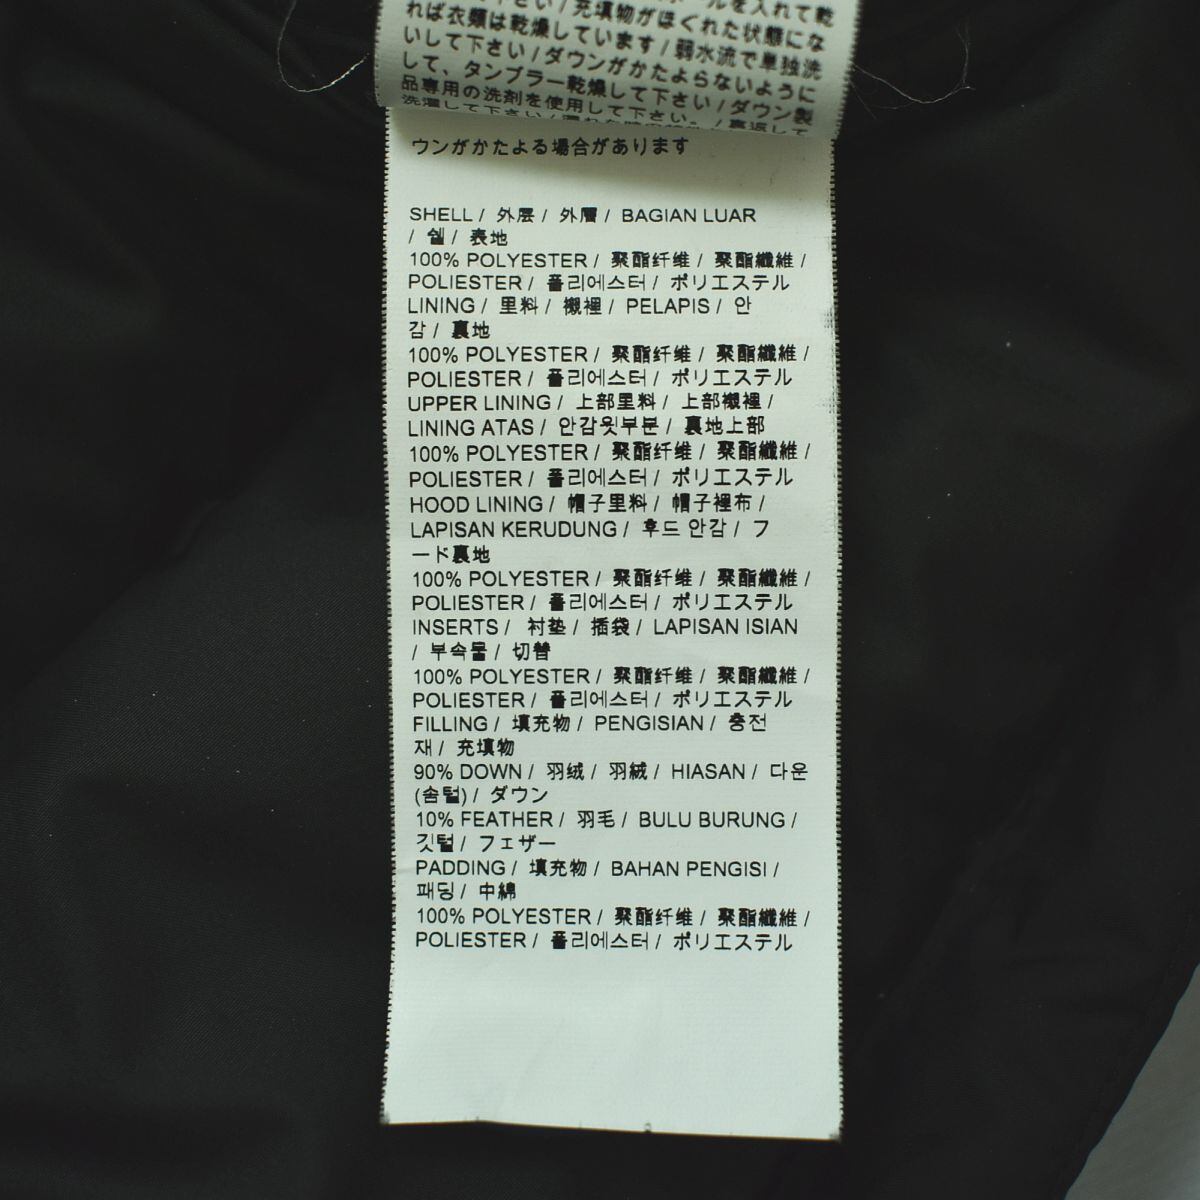 ールを入れて乾
下さい/充填物がほぐれた状態にな
れば衣類は乾燥しています/弱水流で単独洗
いして下さい/ダウンがかたよらないように
して、タンブラー乾燥して下さい/ダウン製
品専用の洗剤を使用して下さい。/裏返して
洗濯して下さい/
ウンがかたよる場合があります
SHELL / 外层 / 外層 / BAGIAN LUAR
/ 쉘 / 表地
100% POLYESTER / 聚酯纤维 / 聚酯纖維 /
POLIESTER / 폴리에스터 / ポリエステル
LINING / 里料 / 襯裡 / PELAPIS / 안
감 / 裏地
100% POLYESTER / 聚酯纤维 / 聚酯纖維 /
POLIESTER / 폴리에스터 / ポリエステル
UPPER LINING / 上部里料 / 上部襯裡 /
LINING ATAS / 안감윗부분 / 裏地上部
100% POLYESTER / 聚酯纤维 / 聚酯纖維 /
POLIESTER / 폴리에스터 / ポリエステル
HOOD LINING / 帽子里料 / 帽子裡布 /
LAPISAN KERUDUNG / 후드 안감 / フ
ード裏地
100% POLYESTER / 聚酯纤维 / 聚酯纖維 /
POLIESTER / 폴리에스터 / ポリエステル
INSERTS / 衬垫 / 插袋 / LAPISAN ISIAN
/ 부속물 / 切替
100% POLYESTER / 聚酯纤维 / 聚酯纖維 /
POLIESTER / 폴리에스터 / ポリエステル
FILLING / 填充物 / PENGISIAN / 충전
재 / 充填物
90% DOWN / 羽绒 / 羽絨 / HIASAN / 다운
(솜털) / ダウン
10% FEATHER / 羽毛 / BULU BURUNG /
깃털 / フェザー
PADDING / 填充物 / BAHAN PENGISI /
패딩 / 中綿
100% POLYESTER / 聚酯纤维 / 聚酯纖維 /
POLIESTER / 폴리에스터 / ポリエステル